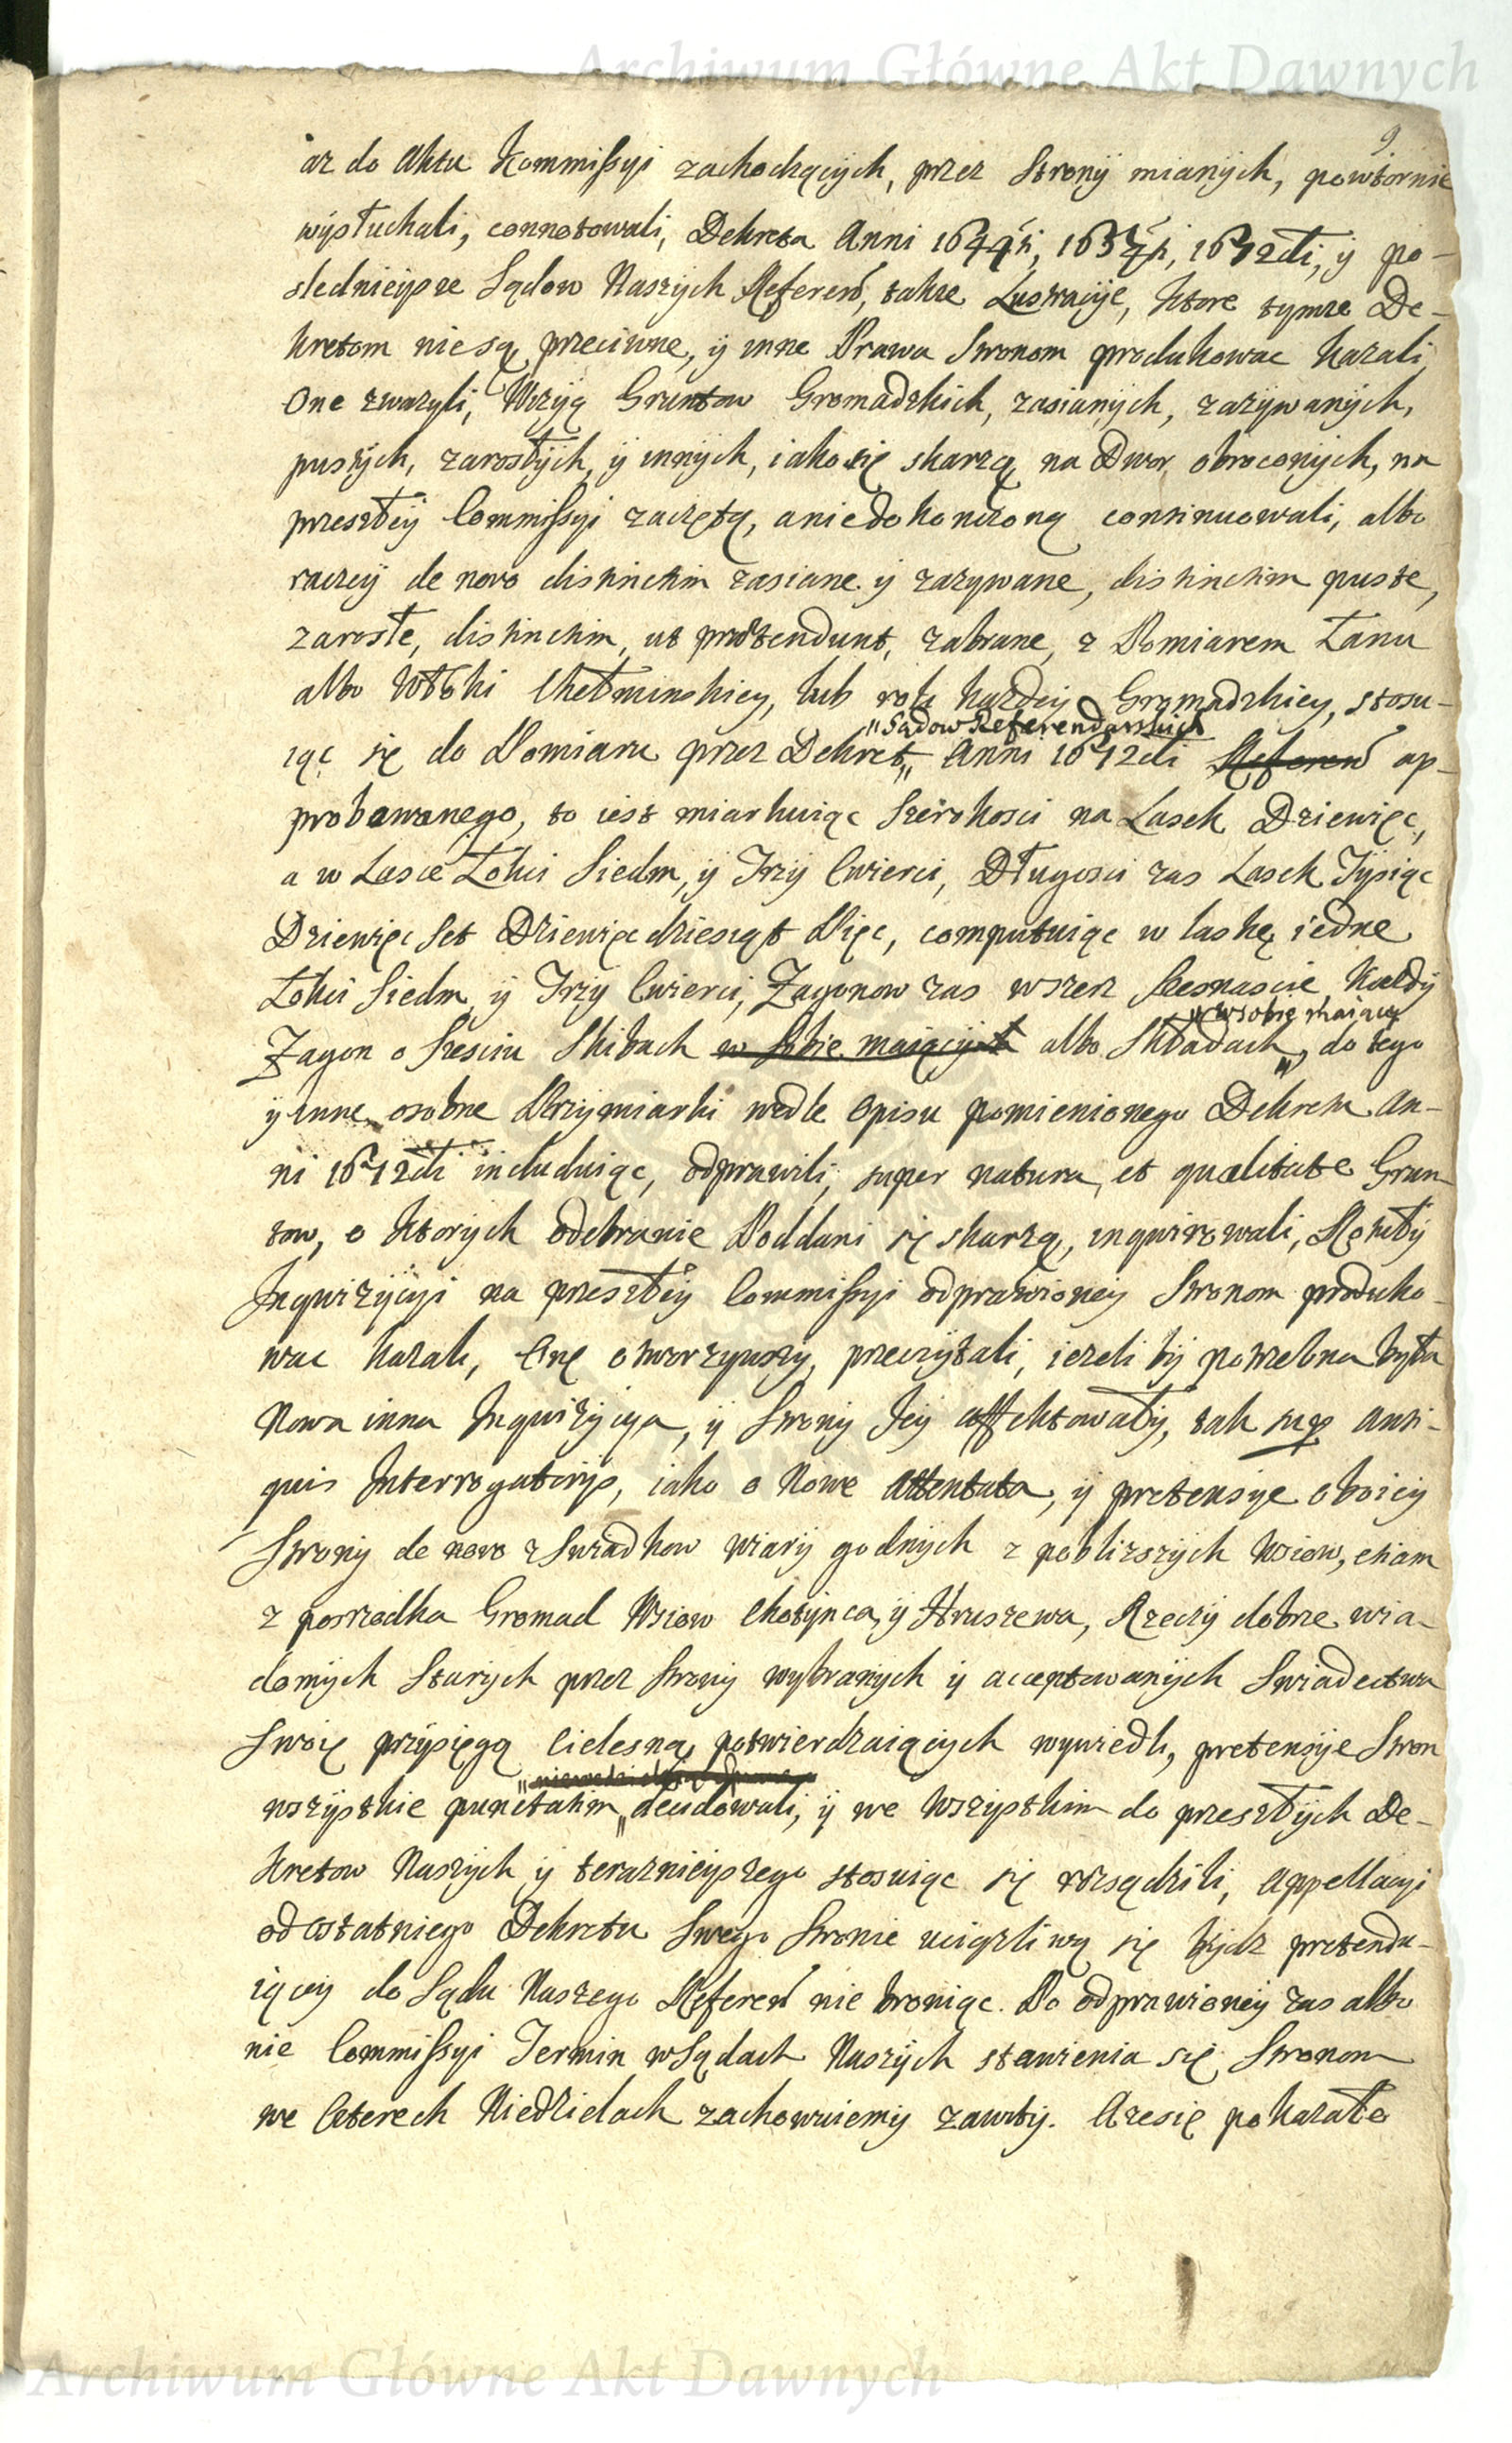 Archiwum Główne Akt Dawnych
9
aż do Aktu Kommissyi zachodzących, przez Strony mianych, powtornie
wysłuchali, connotowali, Dekreta Anni 1644ti, 1657mi, 1672di, y po-
sledniejsze Sądow Naszych Referen, także Lustracye, ktore tymże De-
kretom nie są przeciwne, y inne Prawa Stronom produkować kazali
One zważyli, Wizyą Gruntow Gromadzkich, zasianych, zażywanych,
pustych, zarosłych, y innych, iako się skarżą na Dwor obroconych, na
przeszłey Commissyi zaczętą, a niedokonczoną continuowali, albo
raczey de novo distinctim zasiane y zażywane, distinctim puste,
zarosłe, distinctim, ut prætendunt, zabrane, z Pomiarem Łanu
albo Włoki Chełminskiey, lub roli każdey Gromadzkiey, stosu-
„Sądow Referendarskich
iąc się do Pomiaru przez Dekret„ Anni 1672di Referen ap-
probowanego, to iest miarkuiąc Szerokosci na Lasek Dziewięc,
a w Lasce Łokci Siedm, y Trzy Cwierci, Długosci zas Lasek Tysiąc
Dziewięc Set Dziewięcdziesiąt Pięc, computuiąc w laskę iedne
Łokci Siedm y Trzy Cwierci, Zagonow zas wszerz Szesnascie Każdy
„w sobie maiący
Zagon o Szesciu Skibach w Sobie maiących albo Składach„ do tego
y inne osobne Przymiarki wedle Opisu pomienionego Dekretu An-
ni 1672di includuiąc, odprawili, super natura et qualitate Grun-
tow, o ktorych odebranie Poddani się skarżą, inquirowali, Rotuły
Inquizycyi na przeszłey Commissyi odprawioney Stronom produko-
wac kazali, Onę otworzywszy, przeczytali, ieżeli by potrzebna była
Nowa inna Inquizycya, y Strony Jey affektowały, tak sup Anti-
quis Interrogatorijs, iako o Nowe Attentata, y pretensye oboiey
Strony de novo z Swiadkow wiary godnych z pobliższych Wsiow, etiam
z posrzodka Gromad Wsiow Chotynca, y Hruszewa, Rzeczy dobrze wia-
domych Starych przez Strony wybranych y acceptowanych Swiadectwa
Swoię przysięgą Cielesną potwierdzaiących wywiedli, pretensye Stron
wszystkie punctatim„ decidowali, y we Wszystkim do przeszłych De-
kretow Naszych y teraznieyszego stosuiąc się rozsądzili, Appellacyi
od Ostatniego Dekretu Swego Stronie uciążliwą się bydz pretendu-
iącey do Sądu Naszego Referen nie broniąc. Po odprawioney zas albo
nie Commissyi Termin w Sądach Naszych stawienia się Stronom
we Czterech Niedzielach zachowuiemy zawity. A że się pokazało
Archiwum Główne Akt Dawnych